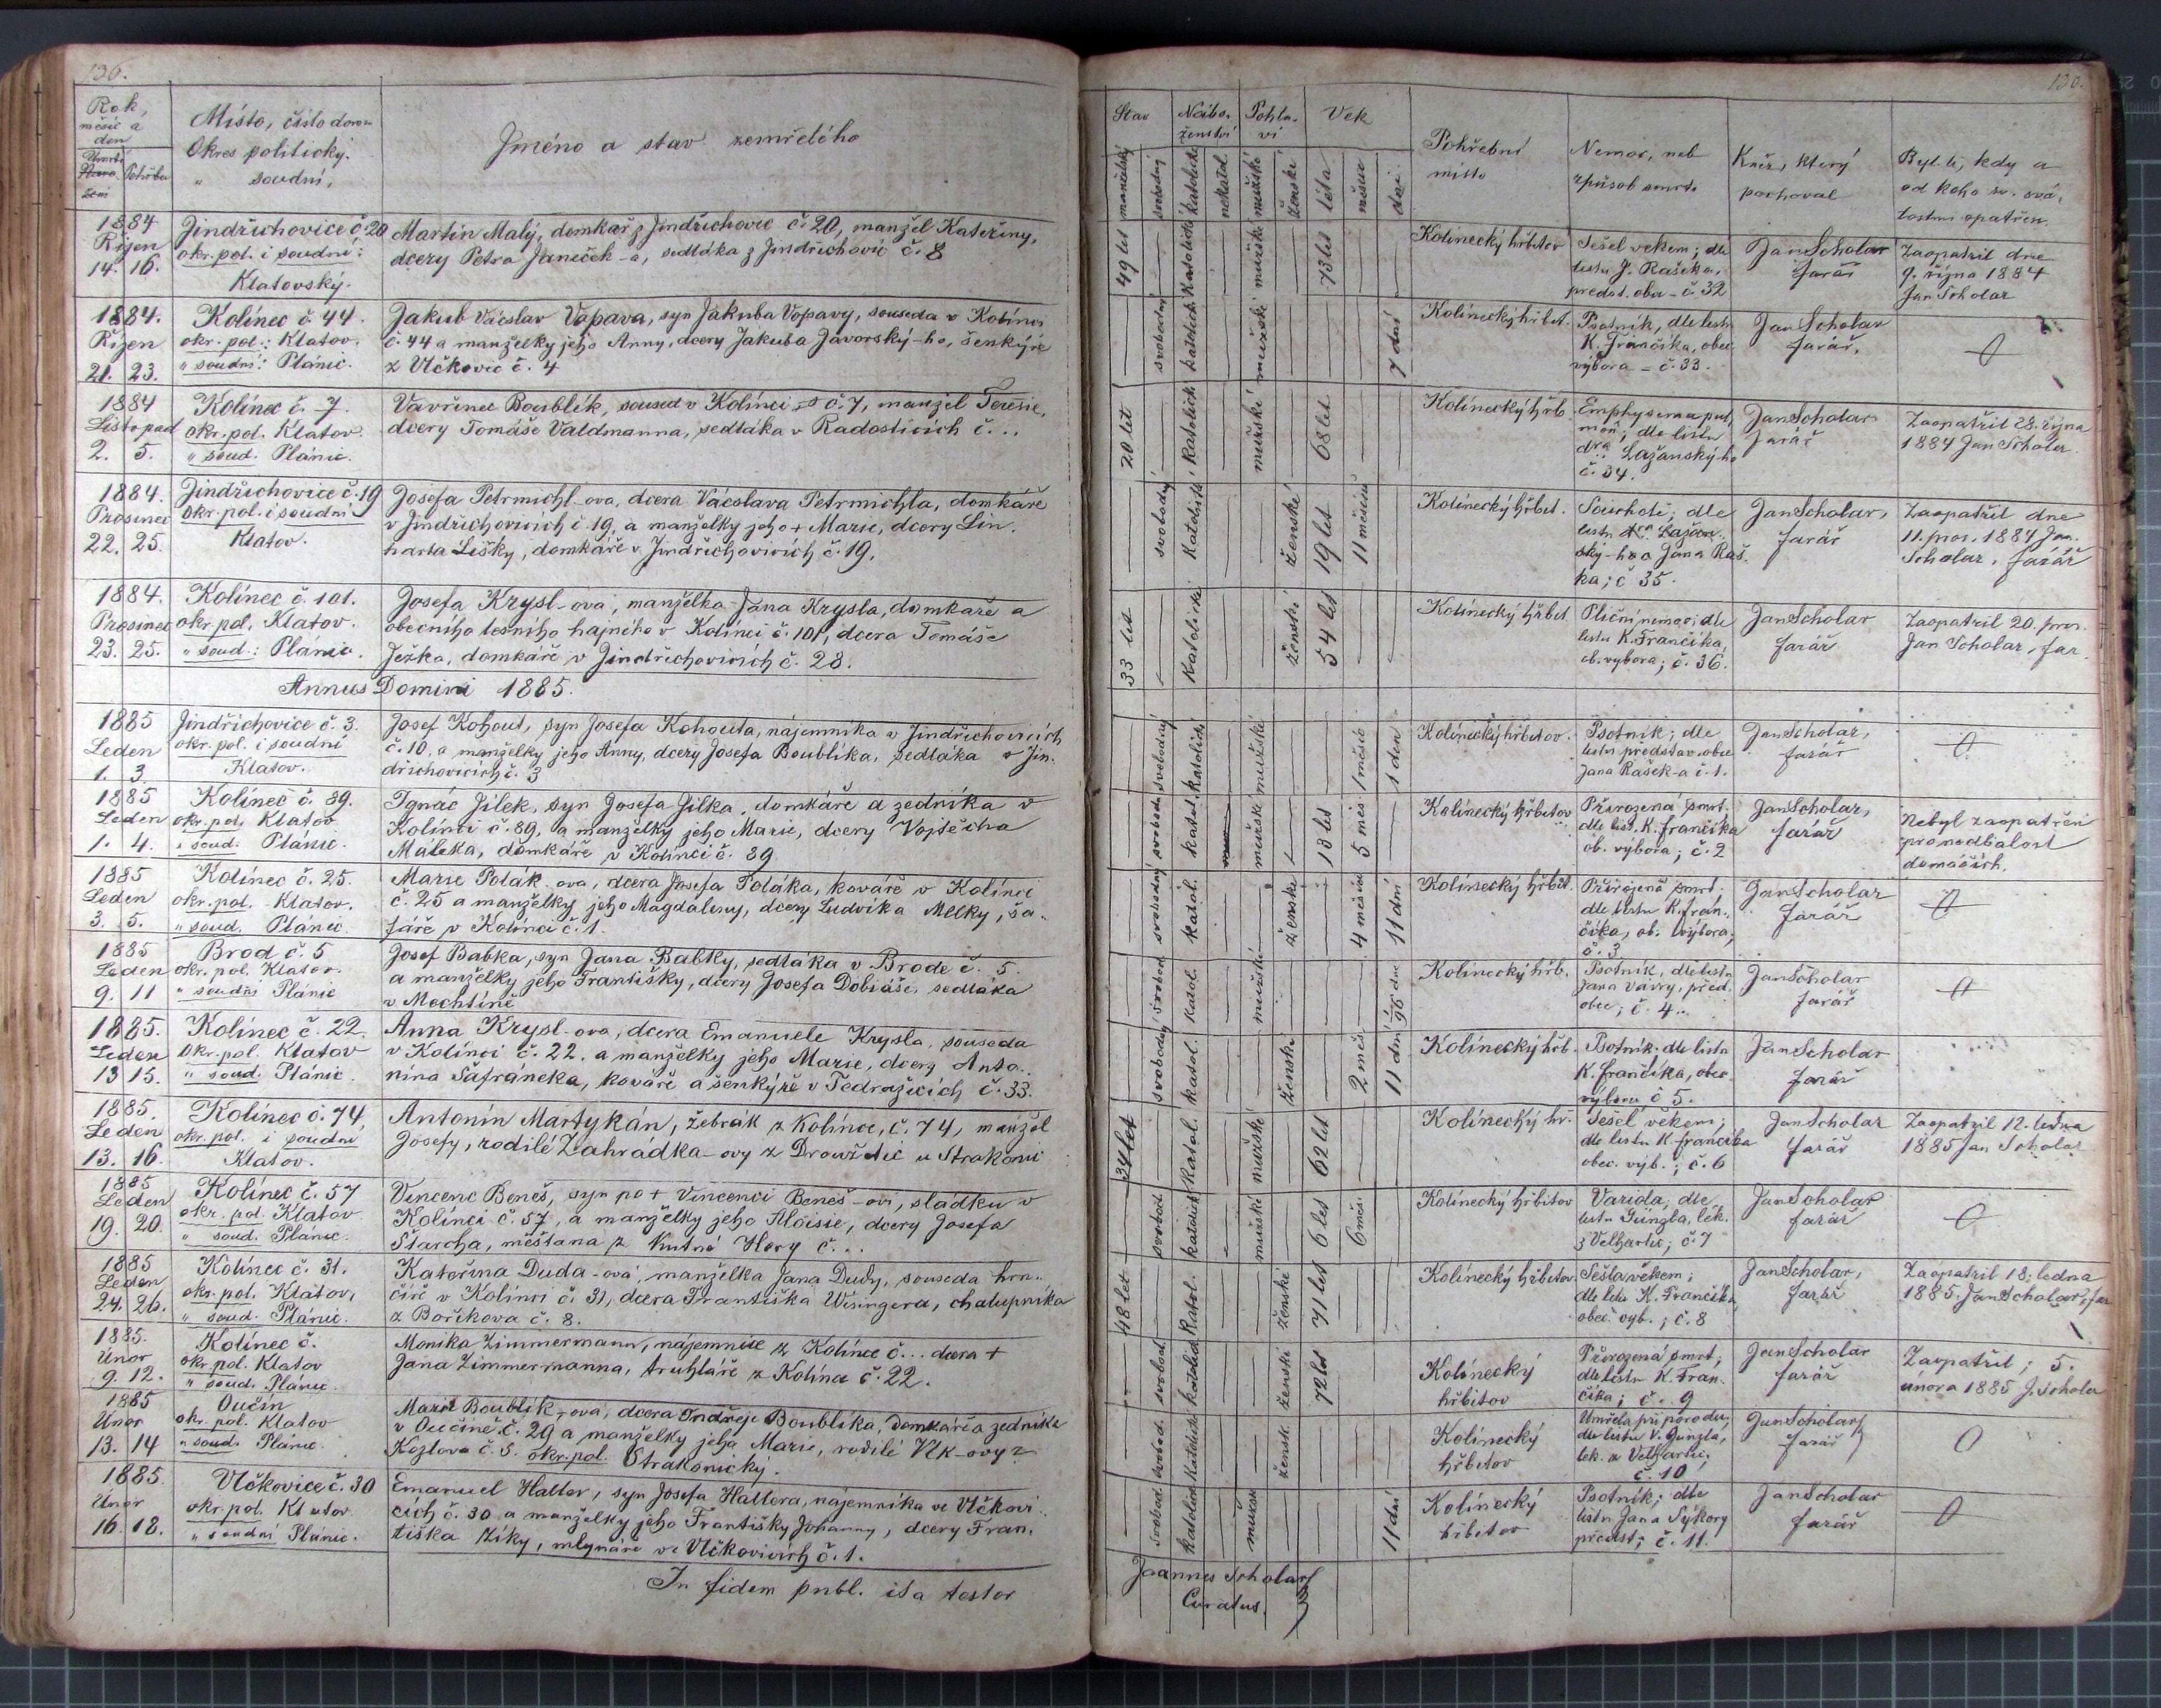 136.
Rok,
měsíc a
den
Úmrtí
Pohřbu
Místo, číslo domu
Okres politický.
" soudní,
Jméno a stav zemřelého
1884
Říjen
14. 16.
Jindřichovice č. 20
okr. pol. i soudní:
Klatovský.
Martin Malý, domkař z Jindřichovic č. 20, manžel Kateřiny,
dcery Petra Janeček-a, sedláka z Jindřichovic č. 8
1884.
Říjen
21. 23.
Kolínec č. 44.
okr. pol.: Klatov.
" soudní: Plánic.
Jakub Václav Vopava, syn Jakuba Vopavy, souseda v Kolínci
č. 44 a manželky jeho Anny, dcery Jakuba Javorský-ho, šenkýře
z Vlčkovic č. 4
1884
Listopad
2. 5.
Kolínec č. 7.
okr. pol. Klatov.
" soud. Plánic.
Vavřinec Boublík, soused v Kolínci č. 7, manžel Teresie,
dcery Tomáše Valdmanna, sedláka v Radosticích č...
1884.
Prosinec
22. 25.
Jindřichovice č. 19
okr. pol. i soudní
Klatov.
Josefa Petrmichl-ova, dcera Václava Petrmichla, domkáře
v Jindřichovicích č. 19, a manželky jeho + Marie, dcery Lin-
harta Lišky, domkáře v Jindřichovicích č. 19.
1884.
Prosinec
23. 25.
Kolínec č. 101.
okr. pol. Klatov.
" soud.: Plánic.
Josefa Krysl-ová, manželka Jana Krysla, domkaře a
obecního lesního hajného v Kolínci č. 101, dcera Tomáše
Ježka, domkáře v Jindřichovicích č. 28.
Annus Domini 1885.
1885
Leden
1. 3.
Jindřichovice č. 3.
okr. pol. i soudní
Klatov.
Josef Kohout, syn Josefa Kohouta, nájemníka v Jindřichovicích
č. 10, a manželky jeho Anny, dcery Josefa Boublíka, sedláka v Jin-
dřichovicích č. 3
1885
Leden
1. 4.
Kolínec č. 89.
okr. pol. Klatov
i soud. Plánic.
Ignác Jílek, syn Josefa Jílka, domkáře a zedníka v
Kolínci č. 89, a manželky jeho Marie, dcery Vojtěcha
Maleka, domkáře v Kolínci č. 89
1885
Leden
3. 5.
Kolínec č. 25.
okr. pol. Klatov.
" soud. Plánic
Marie Polák-ova, dcera Josefa Poláka, kováře v Kolínci
č. 25 a manželky jeho Magdaleny, dcery Ludvíka Melky, ša-
fáře v Kolínci č. 1.
1885
Leden
9. 11
Brod č. 5
okr. pol. Klatov.
" soudní Plánic
Josef Babka, syn Jana Babky, sedláka v Brodě č. 5
a manželky jeho Františky, dcery Josefa Dobiáše, sedláka
v Mochtíně
1885.
Leden
13 15.
Kolínec č. 22.
okr. pol. Klatov
" soud. Plánic.
Anna Krysl-ova, dcera Emanuele Krysla, souseda
v Kolínci č. 22, a manželky jeho Marie, dcery Anto-
nína Šafráneka, kováře a šenkýře v Tedražicích č. 33.
1885.
Leden
13. 16.
Kolínec č. 74,
okr. pol. i soudní
Klatov.
Antonín Martykán, žebrák z Kolínce, č. 74, manžel
Josefy, rodilé Zahrádka-ovy z Droužetic u Strakonic
1885
Leden
19. 20.
Kolínec č. 57
okr. pol. Klatov
" soud. Plánic.
Vincenc Beneš, syn po + Vincenci Beneš-ovi, sládku v
Kolínci č. 57, a manželky jeho Aloisie, dcery Josefa
Štarcha, měšťana z Kutné Hory č...
1885
Leden
24. 26.
Kolínec č. 31.
okr. pol. Klatov,
" soud. Plánic.
Kateřina Duda-ová, manželka Jana Dudy, souseda hrn-
číře v Kolínci č. 31, dcera Františka Wisingera, chalupníka
z Boříkova č. 8.
1885.
Únor
9. 12.
Kolínec č.
okr. pol. Klatov
" soud. Plánic.
Monika Zimmermann, nájemnice z Kolínce č... dcera +
Jana Zimmermanna, truhláře z Kolína č. 22.
1885
Únor
13. 14
Oučín
okr. pol. Klatov
" soud. Plánic.
Marie Boublík-ova, dcera Ondřeje Boublíka, domkáře a zedníka
v Oučíně č. 29 a manželky jeho Marie, rodilé Vlk-ovy z
Kozlova č. 5. okr. pol. Strakonický.
1885.
Únor
16. 18.
Vlčkovice č. 30
okr. pol. Klatov
" soudní Plánic.
Emanuel Haller, syn Josefa Hallera, nájemníka ve Vlčkovi-
cích č. 30 a manželky jeho Františky Johanny, dcery Fran-
tiška Ziky, mlynáře ve Vlčkovicích č. 1.
In fidem publ. ita testor
136.
Stav
Nábo-
ženství
Pohla-
ví
Věk
manželský
svobodný
katolické
nekatol.
mužské
ženské
léta
měsíce
dni
Pohřební
místo
Nemoc, neb
způsob smrti
Kněz, který
pochoval
Byl-li, kdy a
od koho sv. svá-
tostmi opatřen
49 let
katolické
mužské
73 let
Kolínecký hřbitov
Sešel věkem; dle
listu J. Rašeka,
předst. obce - č. 32
Jan Scholar
farář
Zaopatřil dne
9. října 1884
Jan Scholar
svobodný
katolické
mužské
7 dní
Kolínecký hřbit.
Psotník, dle listu
K. Frančíka, obec.
výbora - č. 33.
Jan Scholar
farář.
20 let
katolické
mužské
68 let
Kolínecký hřb.
Emphysema pul-
mon, dle listu
dra Lažanský-ho
č. 34.
Jan Scholar
farář
Zaopatřil 28. října
1884 Jan Scholar
svobodný
katolické
ženské
19 let
11 měsíců
Kolínecký hřbit.
Souchotě; dle
listu Jana Raš-
ka; č 35.
Jan Scholar,
farář
Zaopatřil dne
11. pros. 1884 Jan
Scholar, farář
33 let
katolické
ženské
54 let
Kolínecký hřbit
Plicní nemoc; dle
listu K. Frančíka,
ob. výbora; č. 36.
Jan Scholar
farář
Zaopatřil 20. pros.
Jan Scholar, far.
svobodný
katolické
mužské
1 měsíc
1 den
Kolínecký hřbitov.
Psotník; dle
listu představ. obce
Jana Rašek-a č. 1.
Jan Scholar,
farář
svobod.
katol.
mužské
13 let
5 měs.
Kolínecký hřbitov
Přirozená smrt.
dle list. K. Frančíka
ob. výbora; č. 2
Jan Scholar,
farář
Nebyl zaopatřen
pro nedbalost
domácích.
svobodný
katol.
ženské
4 měsíce
11 dní
Kolínecký hřbit.
Přirozená smrt;
dle listu K. Fran-
číka, ob. výbora;
č. 3
Jan Scholar
farář
svobod.
katol.
mužské
Kolínecký hřb.
Psotník, dle listu
Jana Vávry, před.
obec; č. 4.
Jan Scholar
farář
svobodný
katol.
ženské
2 měs.
11 dní
Kolínecký hřb.
Psotník; dle listu
K. Frančíka, obec.
výbora č 5.
Jan Scholar
farář
34 let
katol.
mužské
62 let
Kolínecký hř.
Sešel věkem;
dle listu K. Frančíka
obec. výb.; č. 6
Jan Scholar
farář
Zaopatřil 12. ledna
1885 Jan Scholar
svobod.
katolické
mužské
6 let
6 měs.
Kolínecký hřbitov
Variola; dle
listu Günzla, lék.
z Velhartic; č. 7
Jan Scholar
farář
48 let
katol.
ženské
71 let
Kolínecký hřbitov
Sešla věkem;
dle listu K. Frančíka,
obec. výb.; č. 8
Jan Scholar,
farář
Zaopatřil 18. ledna
1885. Jan Scholar, far
svobod.
katolické
ženské
72 let
Kolínecký
hřbitov
Přirozená smrt;
dle listu K. Fran-
číka; č. 9
Jan Scholar
farář
Zaopatřil; 5.
února 1885 J. Schola
svobod.
katolické
žensk.
Kolínecký
hřbitov
Umřela při porodu;
dle listu V. Gunzla,
lék. z Velhartic;
č. 10
Jan Scholar
farář
svobod.
katolické
mužsk
11 dní
Kolínecký
hřbitov
Psotník; dle
listu Jana Sýkory
předst; č. 11.
Jan Scholar
farář
Joannes Scholar
Curatus.